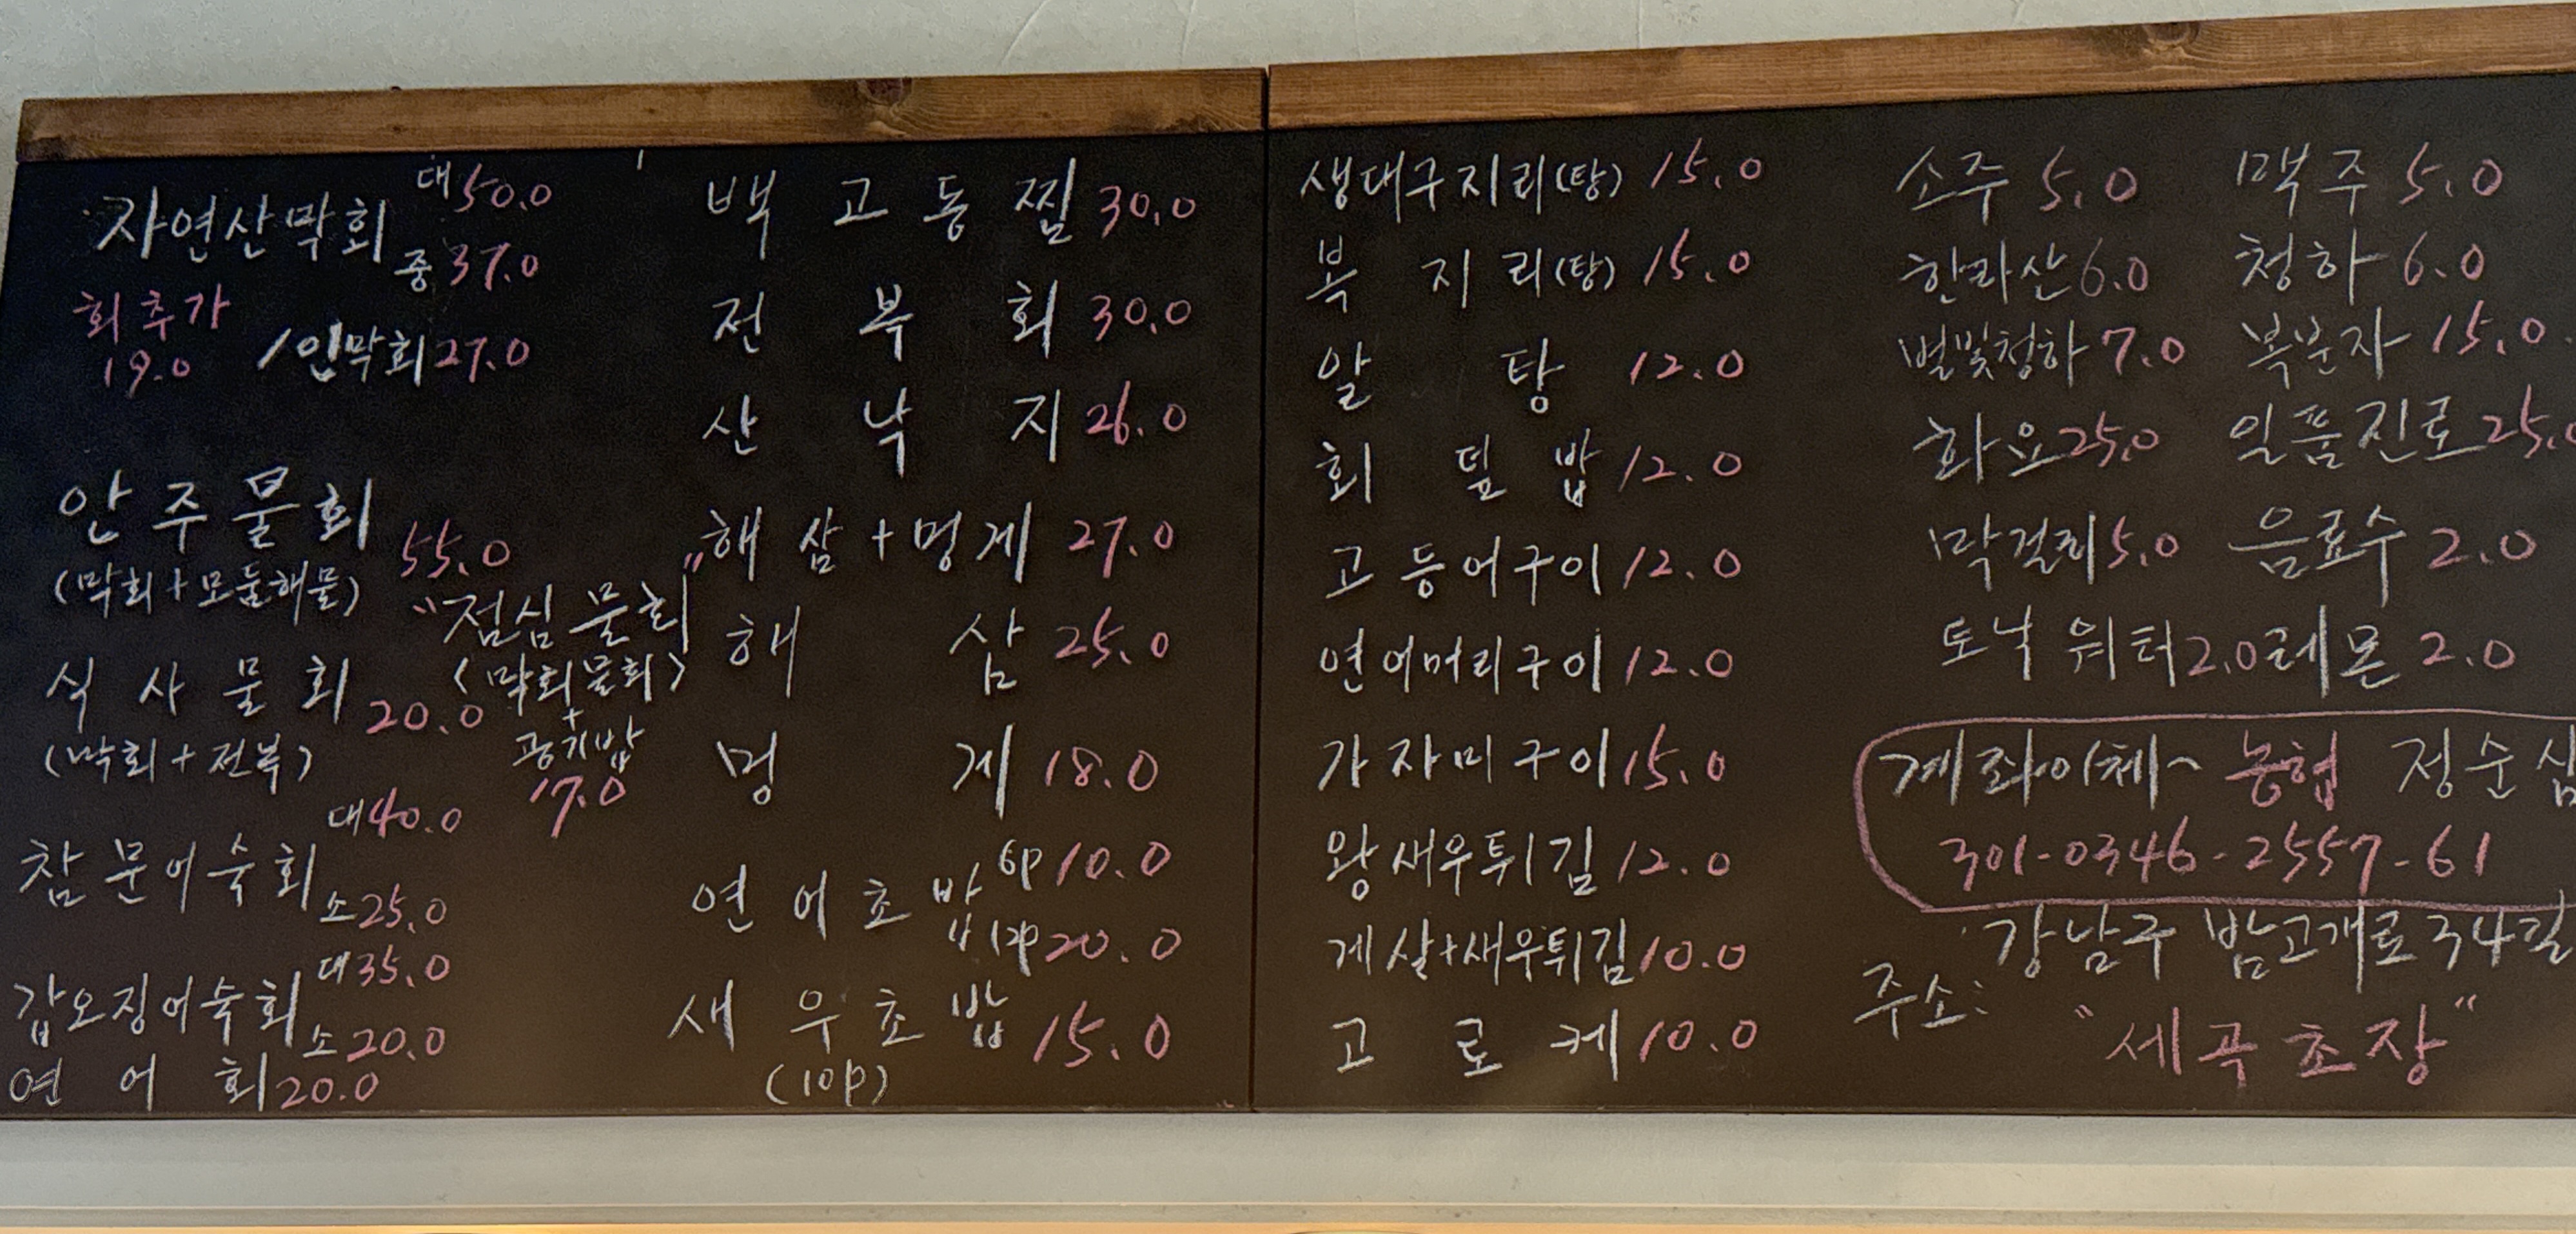 자연산막회 대 50.0
중 37.0
회추가
19.0
1인막회 27.0
안주물회 55.0
(막회+모둠해물)
식사물회 20.0
(막회+전복)
"점심물회"
(막회물회)
+
공기밥
17.0
참문어숙회 대 40.0
소 25.0
갑오징어숙회 대 35.0
소 20.0
연어회 20.0
백고동찜 30.0
전복회 30.0
산낙지 26.0
해삼+멍게 27.0
해삼 25.0
멍게 18.0
연어초밥 6p 10.0
12p 20.0
새우초밥 15.0
(10p)
생대구지리(탕) 15.0
복지리(탕) 15.0
알탕 12.0
회덮밥 12.0
고등어구이 12.0
연어머리구이 12.0
가자미구이 15.0
왕새우튀김 12.0
게살+새우튀김 10.0
고로케 10.0
소주 5.0 맥주 5.0
한라산 6.0 청하 6.0
별빛청하 7.0 복분자 15.0
화요 25.0 일품진로 25.0
막걸리 5.0 음료수 2.0
토닉워터 2.0 레몬 2.0
계좌이체~ 농협 정순심
301-0346-2557-61
주소: 강남구 밤고개로34길
"세곡초장"